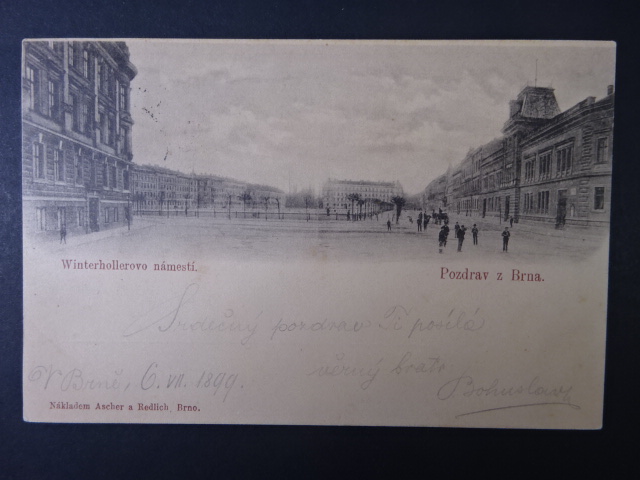 Winterhollerovo námestí.
Pozdrav z Brna.
Srdečný pozdrav Ti posílá
věrný bratr
V Brně, 6. VII. 1899.
Bohuslav
Nákladem Ascher a Redlich, Brno.